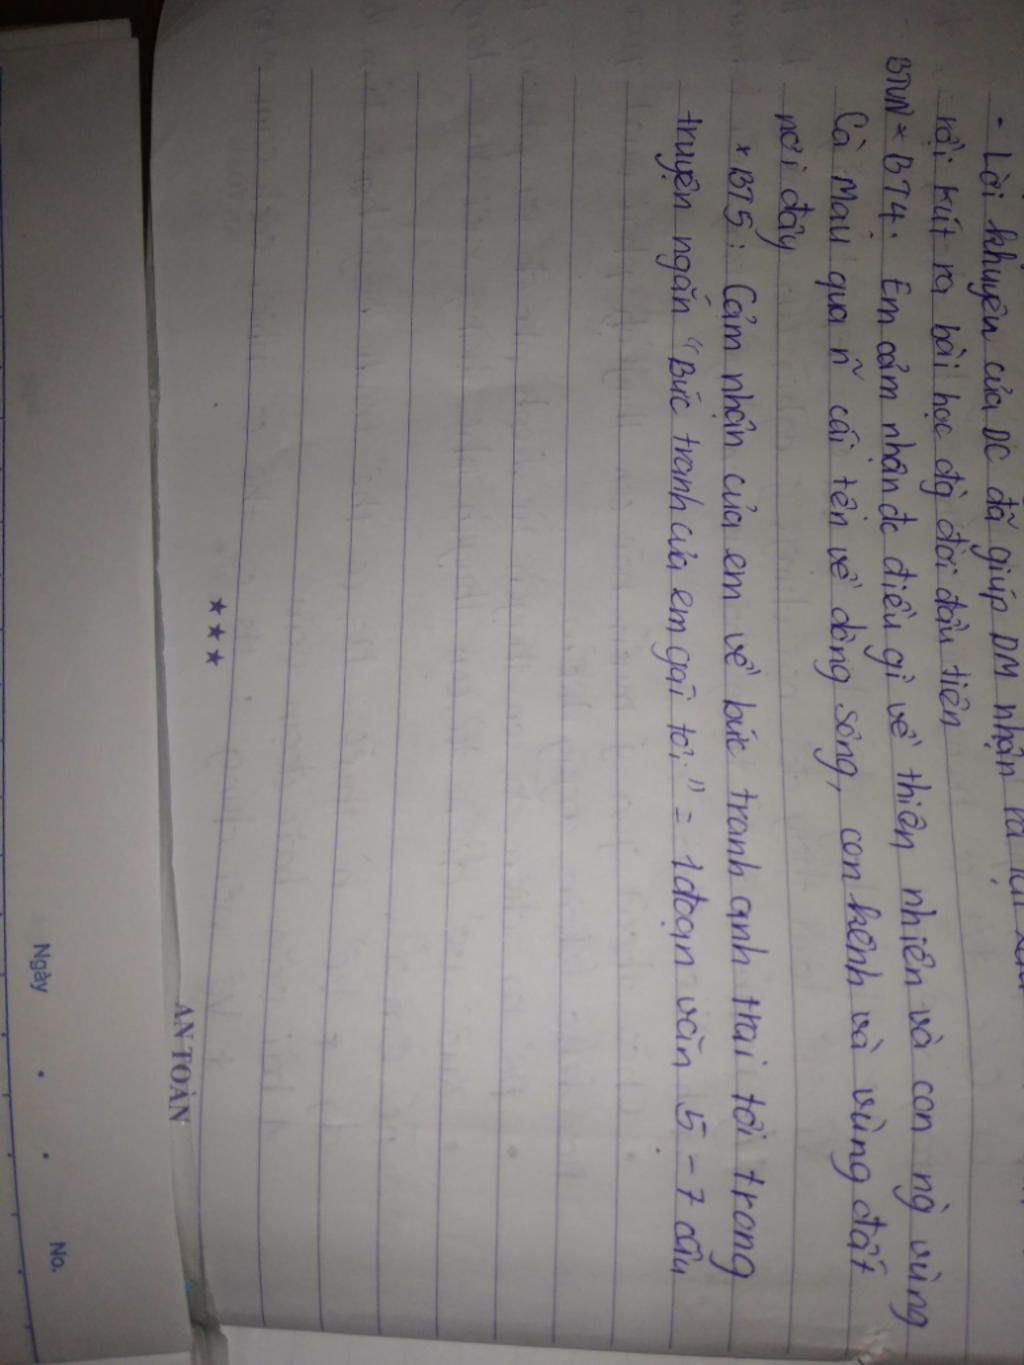 - Lời khuyên của DC đã giúp DM nhận ra
rồi rút ra bài học đg đời đầu tiên
BTVN * BT4. Em cảm nhận đc điều gì về thiên nhiên và con ng vùng
Cà Mau qua ~ cái tên về dòng sông, con kênh và vùng đất
nơi đây
* BT5: Cảm nhận của em về bức tranh anh trai tôi trong
truyện ngắn "Bức tranh của em gái tôi" = 1 đoạn văn 5 - 7 câu
★★★
AN TOÀN
Ngày . . No.